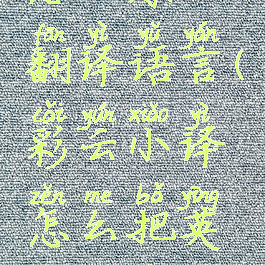 fān yì yǔ yán
翻译语言(
cǎi yún xiǎo yì
彩云小译
zěn me bǎ yīng
怎么把英